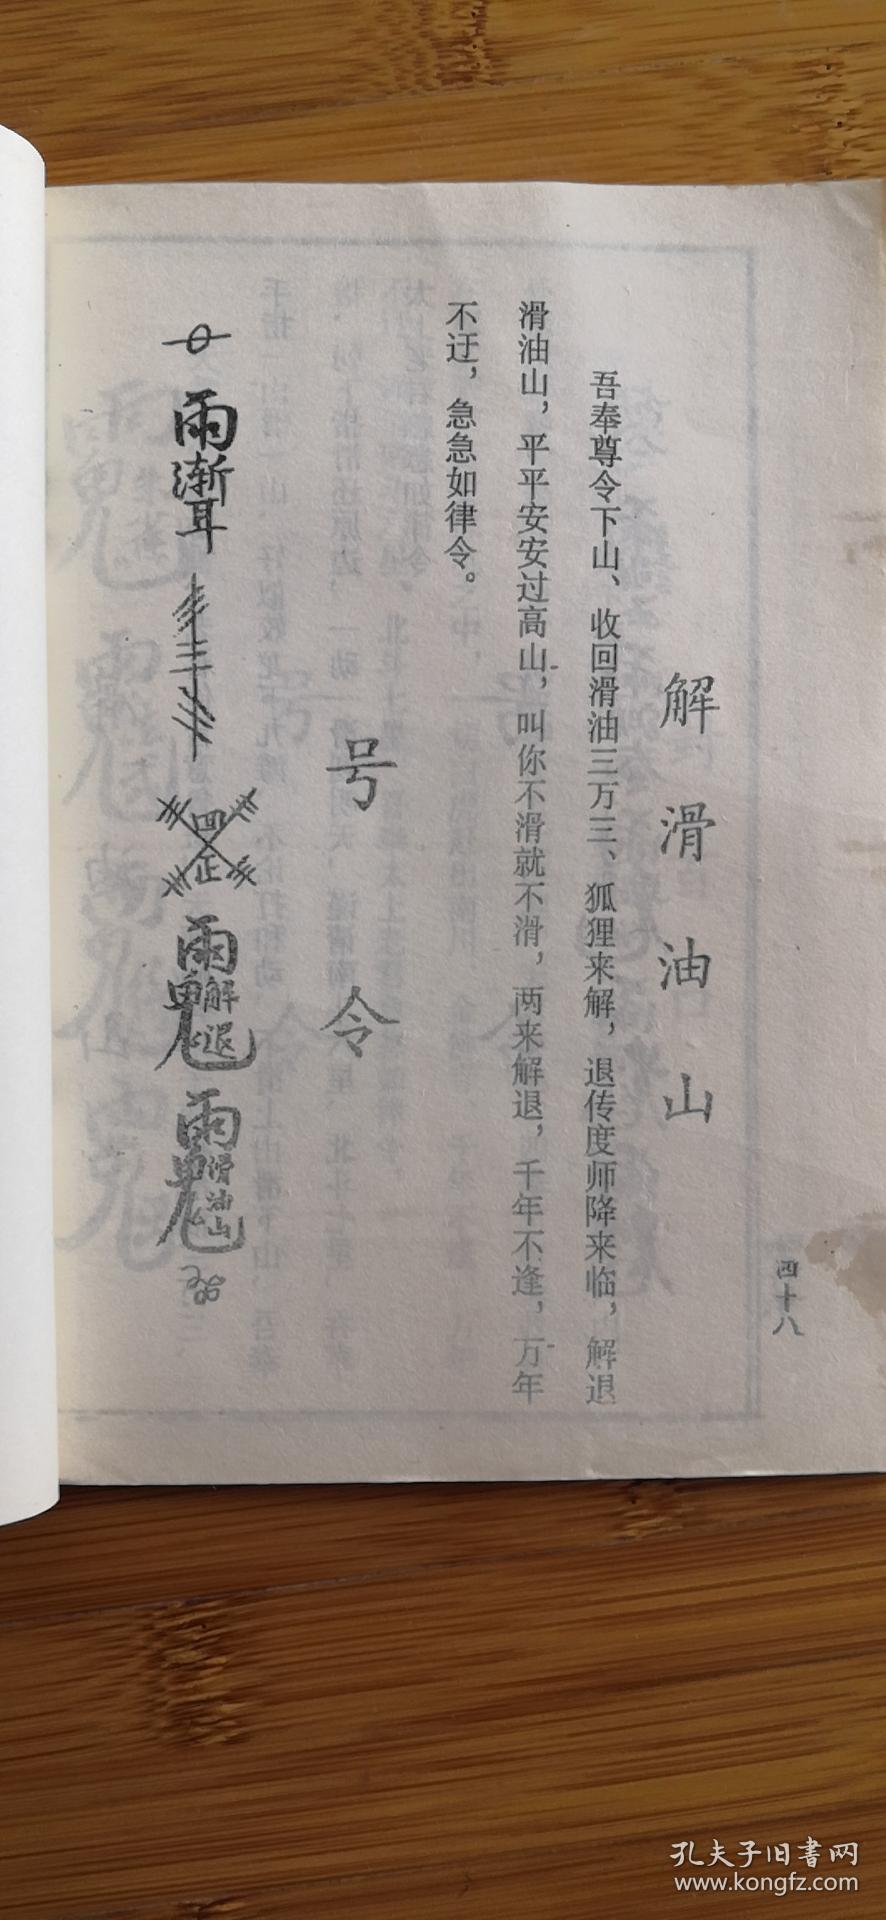 解滑油山
吾奉尊令下山、收回滑油三万三、狐狸来解，退传度师降来临，解退
滑油山，平平安安过高山，叫你不滑就不滑，两来解退，千年不逢，万年
不迂，急急如律令。
号令
四十八
孔夫子旧书网
www.kongfz.com